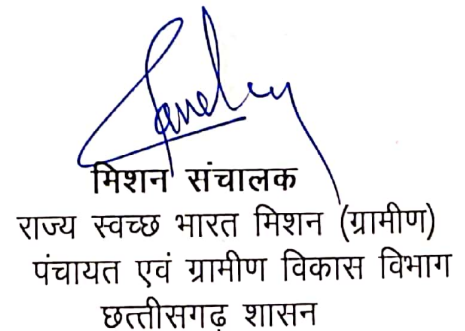 मिशन संचालक
राज्य स्वच्छ भारत मिशन (ग्रामीण)
पंचायत एवं ग्रामीण विकास विभाग
छत्तीसगढ़ शासन